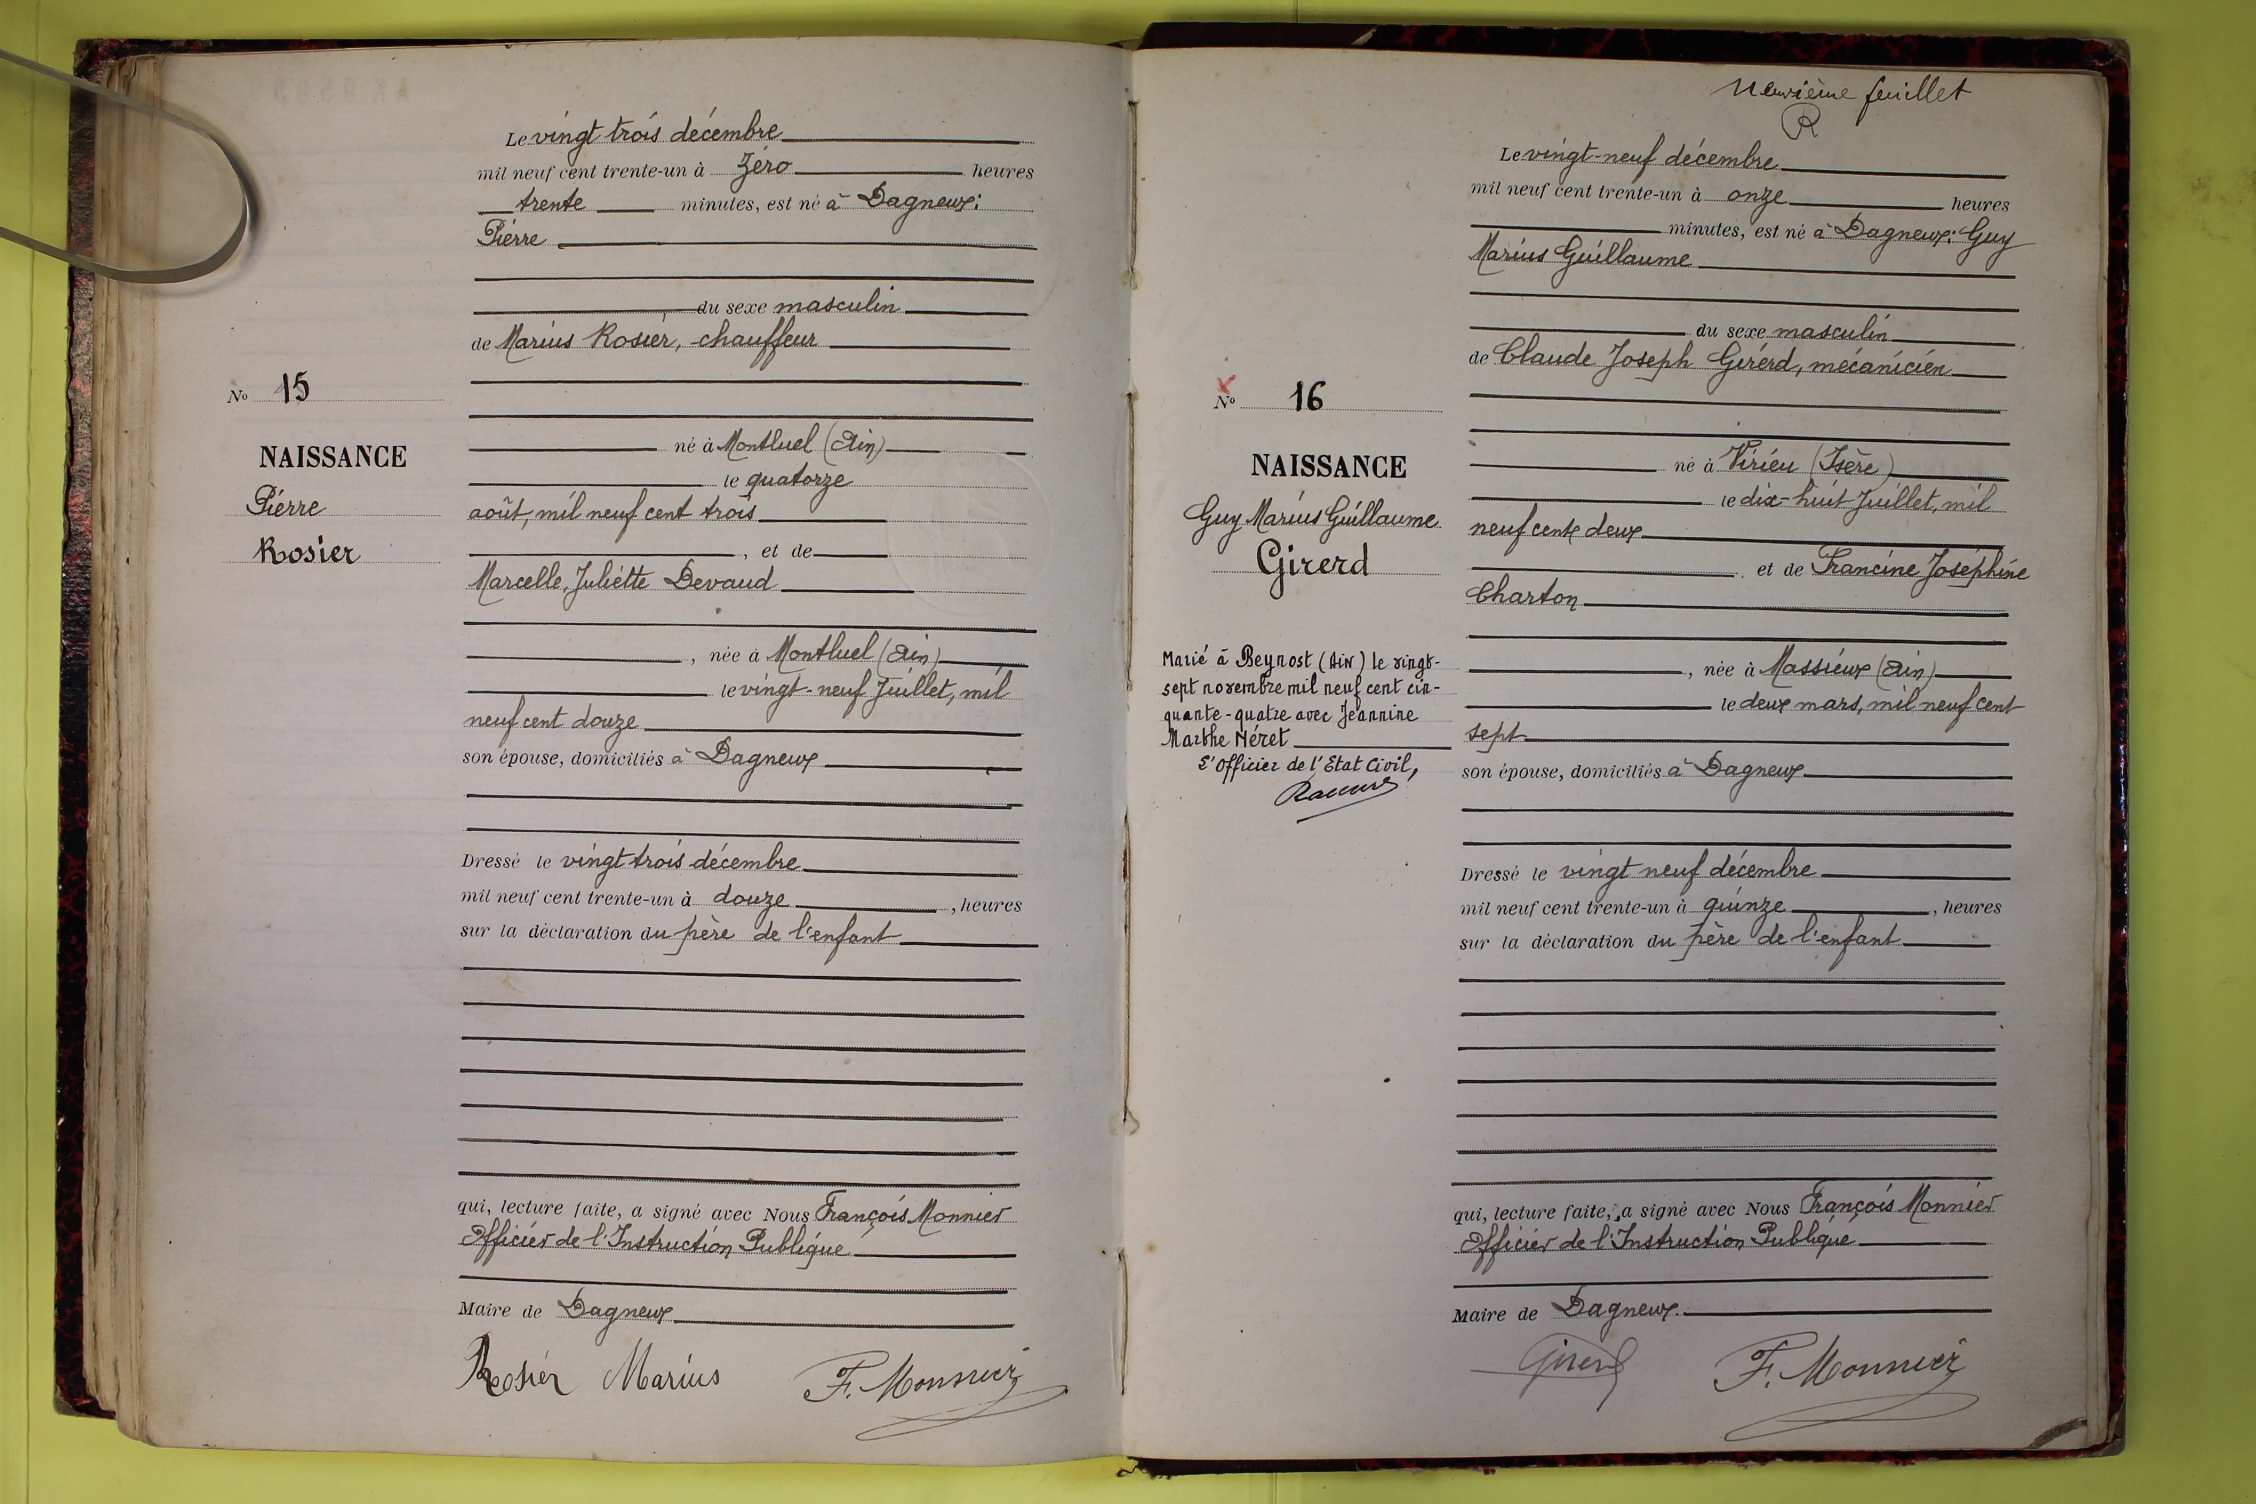 Le vingt trois décembre
mil neuf cent trente-un à Zéro heures
trente minutes, est né à Dagneux:
Pierre
du sexe masculin
de Marius Rosier, chauffeur
No 15
NAISSANCE
Pierre
Rosier
né à Montluel (Ain)
le quatorze
août, mil neuf cent trois
, et de
Marcelle, Juliette Devaud
, née à Montluel (Ain)
le vingt-neuf Juillet, mil
neuf cent douze
son épouse, domiciliés à Dagneux
Dressé le vingt trois décembre
mil neuf cent trente-un à douze , heures
sur la déclaration du père de l'enfant
qui, lecture faite, a signé avec Nous François Monnier
Officier de l'Instruction Publique
Maire de Dagneux
Rosier Marius F. Monnier
Neuvième feuillet
R
Le vingt-neuf décembre
mil neuf cent trente-un à onze heures
minutes, est né à Dagneux: Guy
Marius Guillaume
du sexe masculin
de Claude Joseph Girerd, mécanicien
No 16
NAISSANCE
Guy Marius Guillaume
Girerd
Marié à Beynost (Ain) le vingt-
sept novembre mil neuf cent cin-
quante-quatre avec Jeannine
Marthe Néret
L'Officier de l'Etat Civil,
né à Virieu (Isère)
le dix-huit Juillet, mil
neuf cent deux
et de Francine Joséphine
Charton
, née à Massieux (Ain)
le deux mars, mil neuf cent
sept
son épouse, domiciliés à Dagneux
Dressé le vingt neuf décembre
mil neuf cent trente-un à quinze , heures
sur la déclaration du père de l'enfant
qui, lecture faite, a signé avec Nous François Monnier
Officier de l'Instruction Publique
Maire de Dagneux.
Girerd F. Monnier